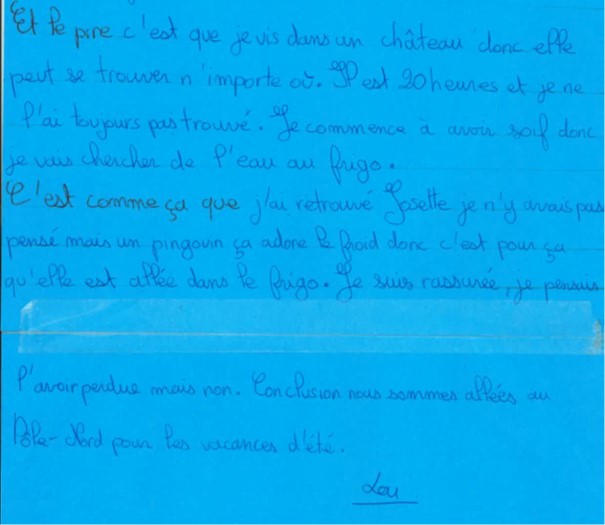 Et le pire c'est que je vis dans un château donc elle
peut se trouver n'importe où. Il est 20 heures et je ne
l'ai toujours pas trouvé. Je commence à avoir soif donc
je vais chercher de l'eau au frigo.
C'est comme ça que j'ai retrouvé Josette je n'y avais pas
pensé mais un pingouin ça adore le froid donc c'est pour ça
qu'elle est allée dans le frigo. Je suis rassurée, je pensais
l'avoir perdue mais non. Conclusion nous sommes allées au
Pôle-Nord pour les vacances d'été.
Lou